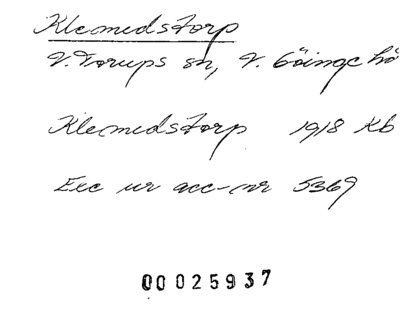 Klemedstorp
V. Torups sn, V. Göinge hd
Klemedstorp 1918 Kb
Exc ur acc-nr 5369
00025937